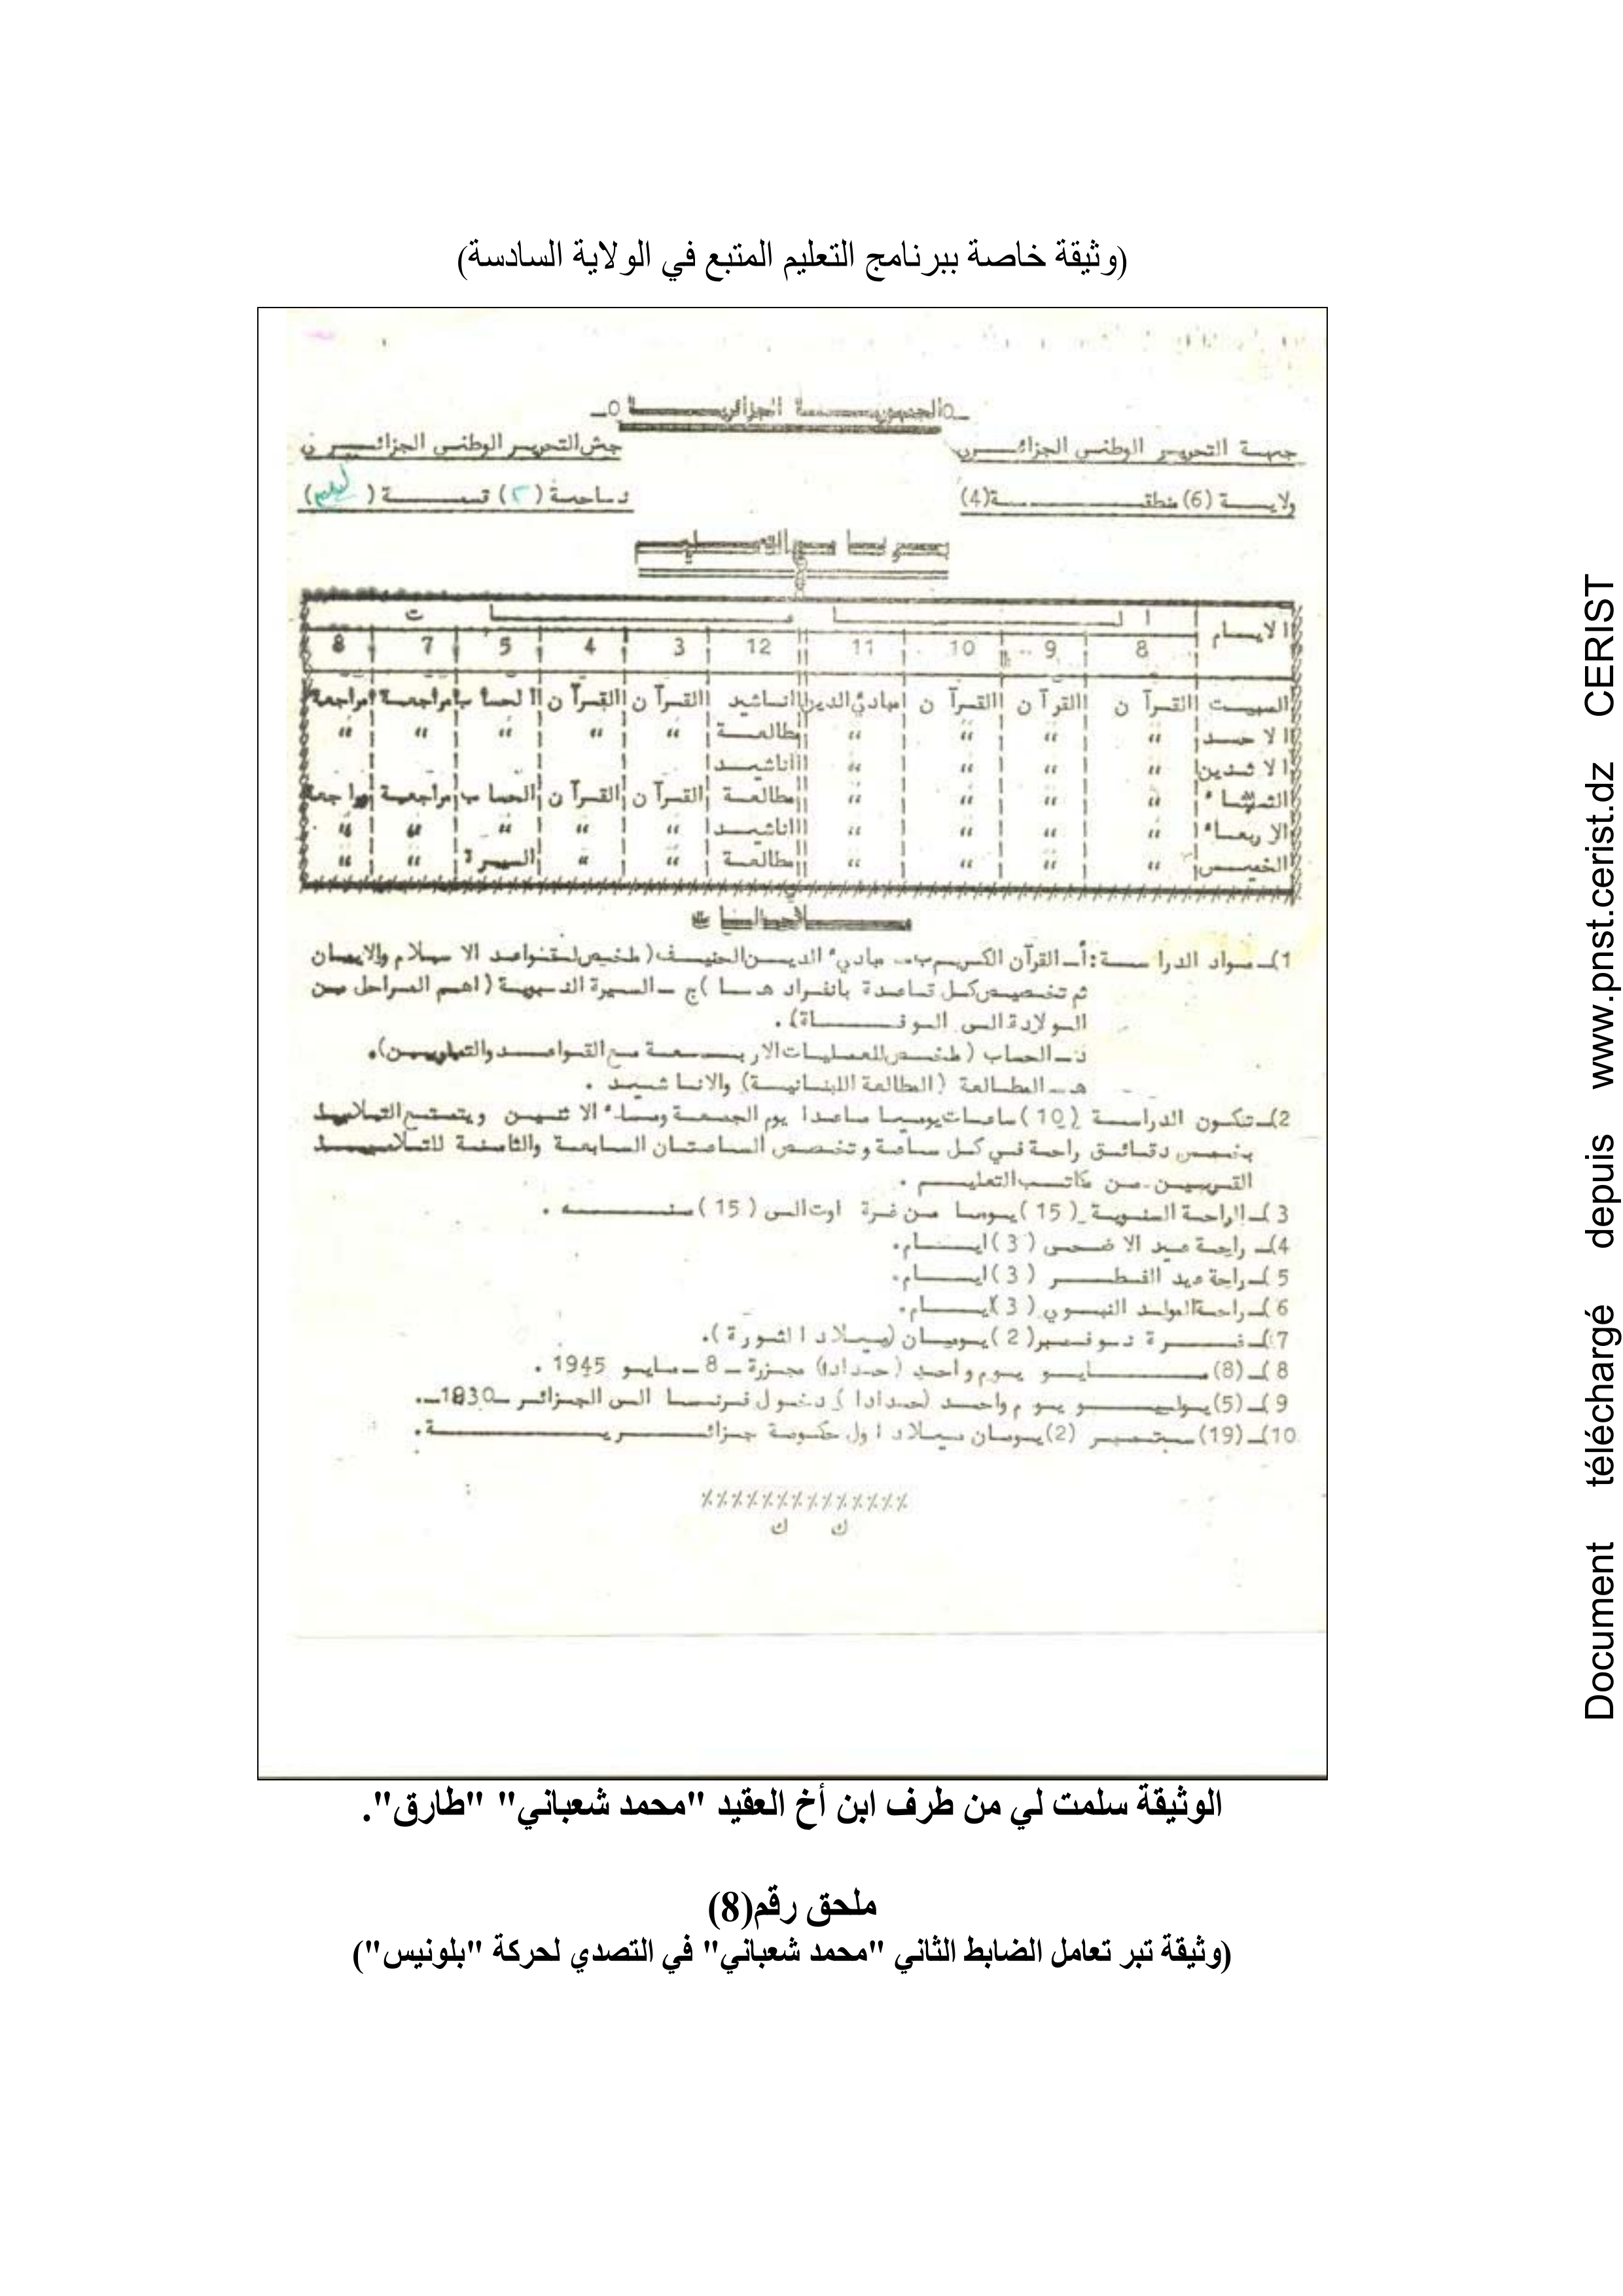 (وثيقة خاصة ببرنامج التعليم المتبع في الولاية السادسة)
الجمهوريـــة الجزائريـــة
جبهة التحرير الوطني الجزائـــري
جش التحرير الوطني الجزائـــري
ولايـــة (6) منطقـــة (4)
ناحية (2) قسمـــة
برنامج التعليم
الايام
الساعات
8 9 10 11 12 3 4 5 7 8
السبت القرآن القرآن القرآن مبادئ الدين اناشيد القرآن القرآن الحساب مراجعة مراجعة
الاحد " " " " مطالعة " " " " "
الاثنين " " " " اناشيد
الثلثاء " " " " مطالعة القرآن القرآن الحساب مراجعة مراجعة
الاربعاء " " " " اناشيد " " " " "
الخميس " " " " مطالعة " " السيرة " "
ملاحظات
1)ـ مواد الدراسة : أـ القرآن الكريم بـ مبادئ الدين الحنيف (ملخص لقواعد الاسلام والايمان
ثم تخصيص كل قاعدة بانفرادها) ج ـ السيرة النبوية (اهم المراحل من
الولادة الى الوفاة).
د ـ الحساب (ملخص للعمليات الاربعة مع القواعد والتمارين).
هـ ـ المطالعة (المطالعة اللبنانية) والاناشيد .
2)ـ تتكون الدراسة (10) ساعات يوميا ماعدا يوم الجمعة ومساء الاثنين ويتمتع التلاميذ
بخمس دقائق راحة في كل ساعة وتخصص الساعتان السابعة والثامنة للتلاميذ
القريبين من مكاتب التعليم .
3)ـ الراحة السنوية (15) يوما من غرة اوت الى (15) منه .
4)ـ راحة عيد الاضحى (3) ايام.
5)ـ راحة عيد الفطر (3) ايام.
6)ـ راحة المولد النبوي (3) ايام.
7)ـ غرة نوفمبر (2) يومان (ميلاد الثورة).
8)ـ (8) مايو يوم واحد (حدادا) مجزرة ـ 8 ـ مايو 1945 .
9)ـ (5) يوليو يوم واحد (حدادا) دخول فرنسا الى الجزائر ـ1830ـ.
10)ـ (19) سبتمبر (2) يومان ميلاد اول حكومة جزائرية.
٪٪٪٪٪٪٪٪٪٪٪٪٪٪
ك ك
الوثيقة سلمت لي من طرف ابن أخ العقيد "محمد شعباني" "طارق".
ملحق رقم(8)
(وثيقة تبر تعامل الضابط الثاني "محمد شعباني" في التصدي لحركة "بلونيس")
Document téléchargé depuis www.pnst.cerist.dz CERIST